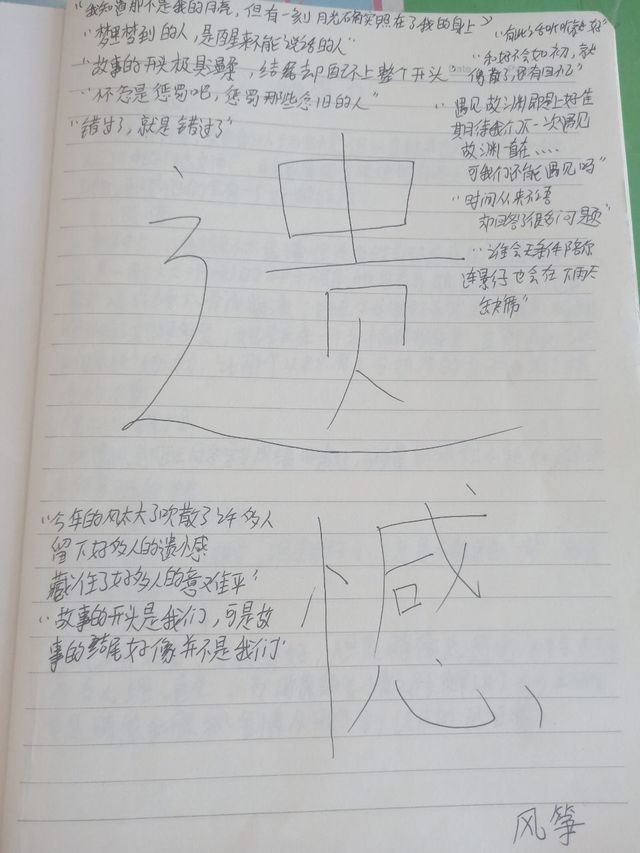 "我知道那不是我的月亮，但有一刻月光确实照在了我的身上"
"梦里梦到的人，是醒来不能说话的人"
"故事的开头极具温柔，结尾却配不上整个开头"
"怀念是惩罚吧，惩罚那些念旧的人"
"错过了，就是错过了"
"有些话听听就好"
"和好不会如初，就
"遇见故渊即是上上佳
期待我们下一次遇见
故渊一直在……
可我们还能遇见吗"
"时间从来不语
却回答了很多问题"
"谁会无条件陪你
连影子也会在下雨天
缺席"
遗
憾
"今年的风太大了吹散了许多人
留下好多人的遗憾
藏住了好多人的意难平"
"故事的开头是我们，可是故
事的结尾好像并不是我们"
风筝